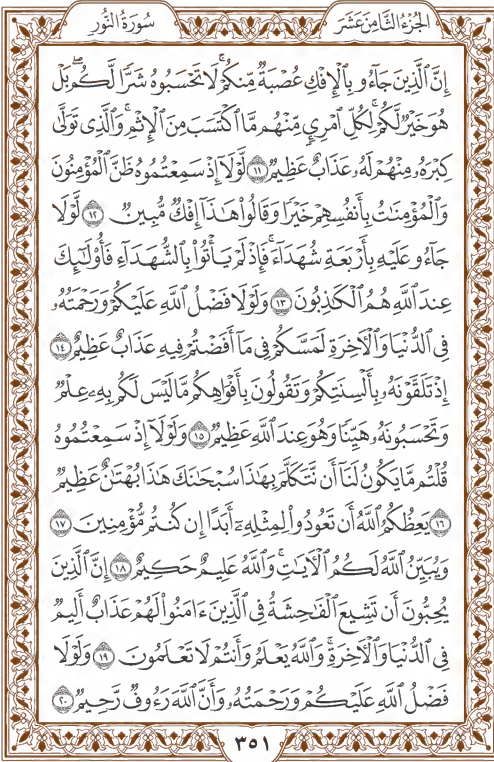 الجزء الثامن عشر
سورة النور
إِنَّ الَّذِينَ جَآءُو بِالْإِفْكِ عُصْبَةٌ مِّنكُمْ ۚ لَا تَحْسَبُوهُ شَرًّا لَّكُم ۖ بَلْ
هُوَ خَيْرٌ لَّكُمْ ۚ لِكُلِّ امْرِئٍ مِّنْهُم مَّا اكْتَسَبَ مِنَ الْإِثْمِ ۚ وَالَّذِى تَوَلَّىٰ
كِبْرَهُۥ مِنْهُمْ لَهُۥ عَذَابٌ عَظِيمٌ ١١ لَّوْلَآ إِذْ سَمِعْتُمُوهُ ظَنَّ الْمُؤْمِنُونَ
وَالْمُؤْمِنَٰتُ بِأَنفُسِهِمْ خَيْرًا وَقَالُوا۟ هَٰذَآ إِفْكٌ مُّبِينٌ ١٢ لَّوْلَا
جَآءُو عَلَيْهِ بِأَرْبَعَةِ شُهَدَآءَ ۚ فَإِذْ لَمْ يَأْتُوا۟ بِالشُّهَدَآءِ فَأُو۟لَٰٓئِكَ
عِندَ اللَّهِ هُمُ الْكَٰذِبُونَ ١٣ وَلَوْلَا فَضْلُ اللَّهِ عَلَيْكُمْ وَرَحْمَتُهُۥ
فِى الدُّنْيَا وَالْآخِرَةِ لَمَسَّكُمْ فِى مَآ أَفَضْتُمْ فِيهِ عَذَابٌ عَظِيمٌ ١٤
إِذْ تَلَقَّوْنَهُۥ بِأَلْسِنَتِكُمْ وَتَقُولُونَ بِأَفْوَاهِكُم مَّا لَيْسَ لَكُم بِهِۦ عِلْمٌ
وَتَحْسَبُونَهُۥ هَيِّنًا وَهُوَ عِندَ اللَّهِ عَظِيمٌ ١٥ وَلَوْلَآ إِذْ سَمِعْتُمُوهُ
قُلْتُم مَّا يَكُونُ لَنَآ أَن نَّتَكَلَّمَ بِهَٰذَا سُبْحَٰنَكَ هَٰذَا بُهْتَٰنٌ عَظِيمٌ
١٦ يَعِظُكُمُ اللَّهُ أَن تَعُودُوا۟ لِمِثْلِهِۦٓ أَبَدًا إِن كُنتُم مُّؤْمِنِينَ ١٧
وَيُبَيِّنُ اللَّهُ لَكُمُ الْآيَٰتِ ۚ وَاللَّهُ عَلِيمٌ حَكِيمٌ ١٨ إِنَّ الَّذِينَ
يُحِبُّونَ أَن تَشِيعَ الْفَٰحِشَةُ فِى الَّذِينَ ءَامَنُوا۟ لَهُمْ عَذَابٌ أَلِيمٌ
فِى الدُّنْيَا وَالْآخِرَةِ ۚ وَاللَّهُ يَعْلَمُ وَأَنتُمْ لَا تَعْلَمُونَ ١٩ وَلَوْلَا
فَضْلُ اللَّهِ عَلَيْكُمْ وَرَحْمَتُهُۥ وَأَنَّ اللَّهَ رَءُوفٌ رَّحِيمٌ ٢٠
٣٥١